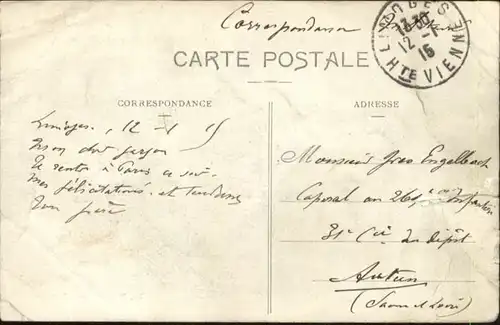 Correspondance
LIMOGES
13-30
12-1
15
HTE VIENNE
CARTE POSTALE
CORRESPONDANCE
ADRESSE
Limoges, 12-1 15
Mon cher garçon
Je rentre à Paris ce soir
mes félicitations et tendresses
Ton père
Monsieur Engelbach
Caporal au 26 d'infanterie
31e Cie du dépôt
Autun
(Saone et Loire)